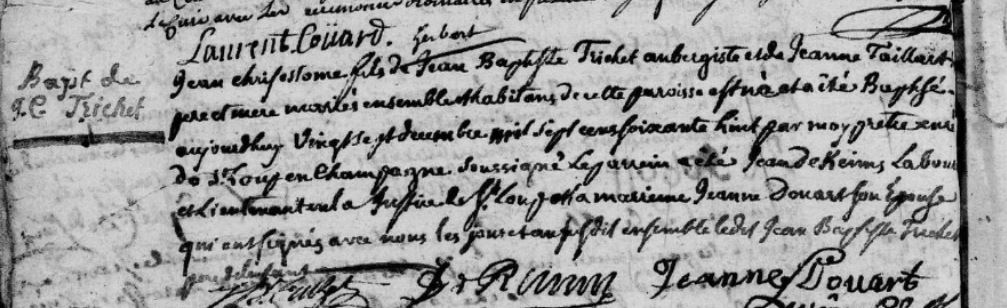 Le Curé avec les cérémonies ordinaires
Laurent Coüard. herbert
Bapt de
J.C Trichet
Jean chrisostome fils de Jean Baptiste Trichet aubergiste et de Jeanne Taillart
pere et mere mariés ensemble et habitans de cette paroisse est né et a été Baptisé
aujourdhuy vingt sept decembre mil sept cens soixante huit par moy prêtre curé
de St Loup en Champagne Soussigné Le parrein a été Jean de Reims Labour
et Lieutenant en la Justice de St Loup et la mareine Jeanne Douart son Épouse
qui ont signés avec nous les jour et an susdit ensemble ledit Jean Baptiste Trichet
pere de lenfant
De Reims Jeanne Douart